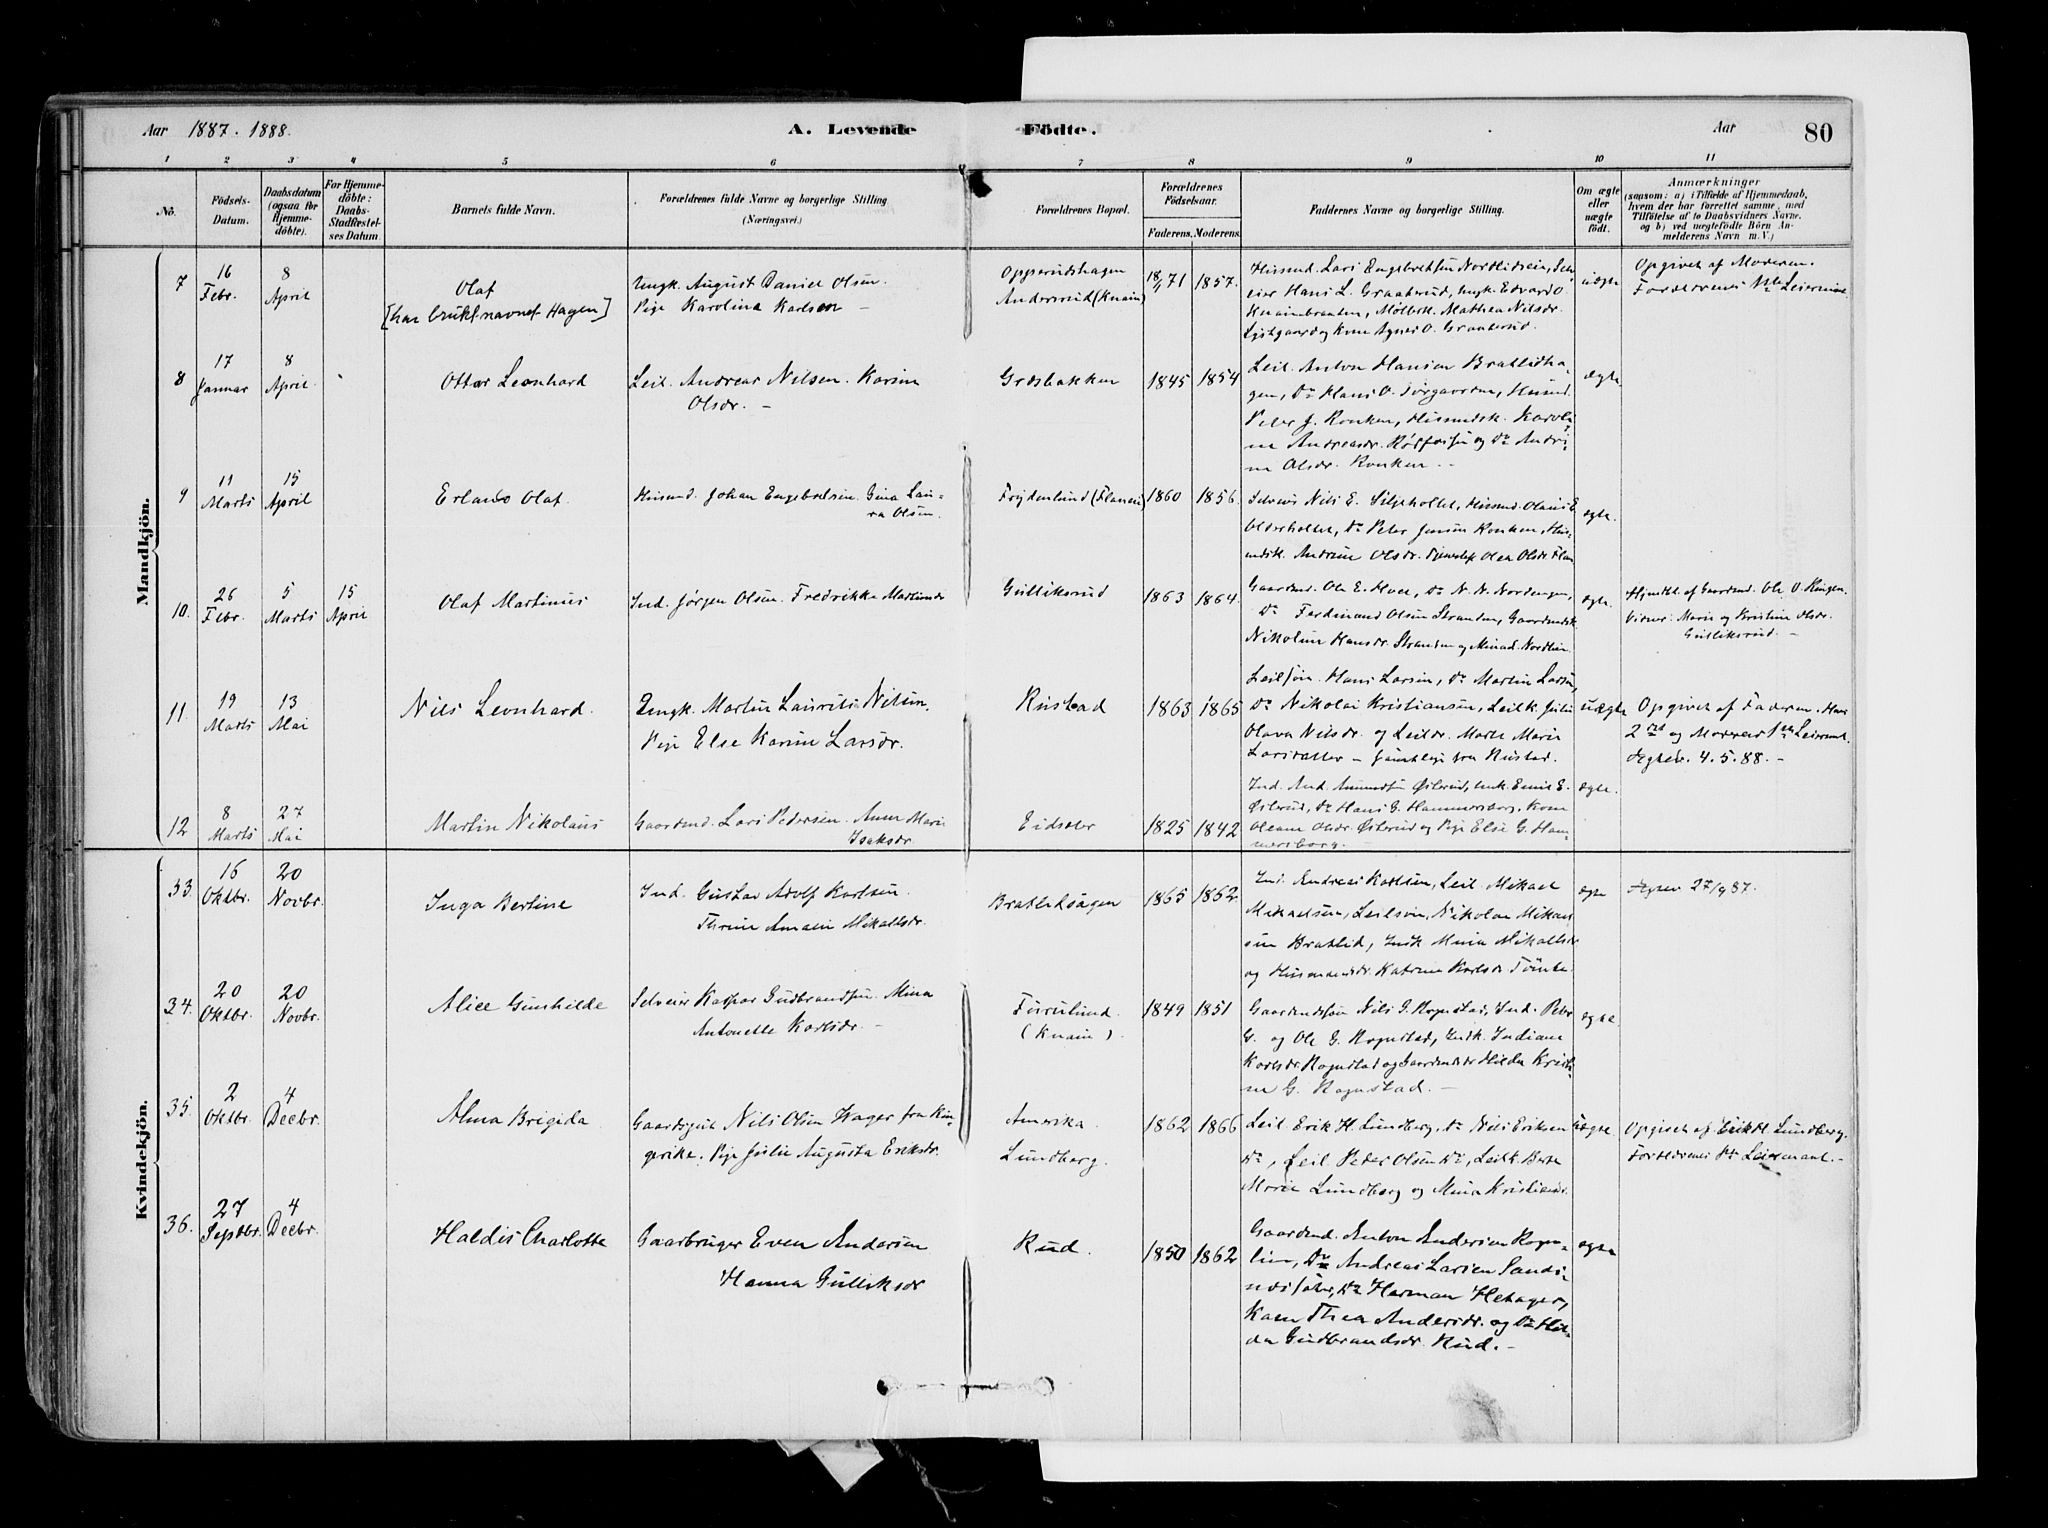 Aar 1887. 1888.
A. Levende Födte.
Aar 80
1 2 3 4 5 6 7 8 9 10 11
No.
Födsels-
Datum.
Daabsdatum
(ogsaa for
Hjemme-
döbte).
For Hjemme-
döbte:
Daabs-
Stadfæstel-
ses Datum
Barnets fulde Navn.
Forældrenes fulde Navne og borgerlige Stilling
(Næringsvei.)
Forældrenes Bopæl.
Forældrenes
Födselsaar.
Faderens. Moderens.
Faddernes Navne og borgerlige Stilling.
Om ægte
eller
uægte
födt.
Anmærkninger
(saasom: a) i Tilfælde af Hjemmedaab,
hvem der har forrettet samme, med
Tilföielse af to Daabsvidners Navne.
og b) ved uægtefödte Börn An-
melderens Navn m. V.)
Mandkjön.
7
16
Febr.
8
April
Olaf
[har brukt navnet Hagen]
Ungk. August Daniel Olsen
Pige Karolina Karlsen
Oppserudshagen
Andersrud (Knain)
1857.
Husmd. Lars Engebretsen Nordlidseie, Selv-
eier Hans L. Graaberud, Ungk. Edvard O
Knainbraaten, Mølbst. Mathea Nilsdr.
Lystgaard og Kone Agnes O. Graaberud.
uægte
Opgivet af Moderen.
Forældrenes 1ste Leiermaal
8
17
Januar
8
April
Ottar Leonhard
Leil. Andreas Nilsen. Karine
Olsdr. –
Græsbakken
1845 1854
Leil. Anton Hansen Bratlidha-
gen, Do Hans O. Torgaarden, Husmd.
Peter J. Konken, Husmdsk. Karoli-
ne Andreasdr. og Do Andri-
ne Olsdr. Konken. –
ægte.
9
11
Marts
15
April
Erland Olaf
Husmd. Johan Engebretsen. Gina Lau-
ra Olsen.
Frydenlund (Flanen)
1860 1856.
Selveier Nils E. Siljeholtet, Husmd. Olaus E.
Olderholtet, Do Peter Jensen Konken, Hus-
mdsk. Andrine Olsdr. Olea Olsdr. Flan
ægte.
10.
26
Febr.
5
Marts
15
April
Olaf Martinus
Ind. Jørgen Olsen. Fredrikke Martinsdr
Gulliksrud
1863 1864.
Gaardmd. Ole E. Hval, Do N. N. Nordengen,
Do Ferdinand Olsen Stranden, Gaardmdsk.
Nikoline Hansdr. Stranden og Nordlien.
ægte.
Hjemdbt af Gaardmd. Ole O. Ringen.
Vidner: Marie og Kristine Olsdr.
Gulliksrud. –
11.
19
Marts
13
Mai
Nils Leonhard.
Ungk. Martin Laurits Nilsen.
Pige Else Karine Larsdr.
Rustad
1863 1865
Leilsøn. Hans Larsen, Do Martin Larsen,
Do Nikolai Kristiansen, Leilk. Julie
Olava Nilsdr. og Leildr. Marte Marie
Larsdatter – samtlige fra Rustad.
uægte
Opgivet af Faderen. Hans
2det og Moderens 1ste Leiermaal.
Ægtev. 4.5.88. –
12
8
Marts
27
Mai
Martin Nikolaus
Gaardmd. Lars Pedersen. Anne Marie
Isaksdr.
Eidsaler
1825 1842
Ind. And. Amundsen Østerud, Ungk. Emil E.
Østerud, Do Hans G. Hammersborg, Kone
Oleane Olsdr. Østerud og Pige Else G. Ham-
mersborg. –
ægte.
Kvindekjön.
33.
16
Oktbr.
20
Novbr.
Inga Bertine
Ind. Gustav Adolf Karlsen.
Thrine Amalie Mikaelsdr.
Bratlidhagen
1865 1862.
Ind. Andreas Karlsen, Leil. Mikael
Mikaelsen, Leilsøn, Nikolai Mikael
sen Bratlid, Indk Mina Mikaelsdr
og Husmandsdr. Katrine Karlsdr Tömte.
ægte
Ægtev. 27/9 87.
34.
20
Oktbr.
20
Novbr.
Alice Gunhilde
Selveier Kaspar Gudbrandsen. Mina
Antonette Karlsdr. –
Furulund.
(Knain).
1849 1851
Gaardmdsøn Nils G. Rognstad, Ind. Peter
G. og Ole G. Rognstad, Indk. Indiane
Karlsdr. Rognstad og Gaardmdsdr Hilda Kristi-
ne G. Rognstad. –
ægte.
35.
2
Oktbr.
4
Decbr.
Alma Brigida
Gaardsgut Nils Olsen Hager fra Rin-
gerike. Pige Julie Augusta Eriksdr.
Amerika.
Lundberg.
1862 1866
Leil. Erik H. Lundberg, Do Nils Eriksen
Do, Leil. Peder Olsen Do, Leilk. Berte
Marie Lundberg og Mina Kristiansdr.
uægte.
Opgivet af Erik H. Lundberg.
Forældrenes 1ste Leiermaal. –
36.
27
Septbr.
4
Decbr.
Haldis Charlotte
Gaarbruger Even Andersen
Hanna Gulliksdr
Rud.
1850 1862
Gaardmd. Anton Andersen Rogn-
lien, Do Andreas Larsen Sands-
, Do Herman Hetager,
Kone Thea Andersdr. og Do Hil-
da Gudbrandsdr. Rud. –
ægte